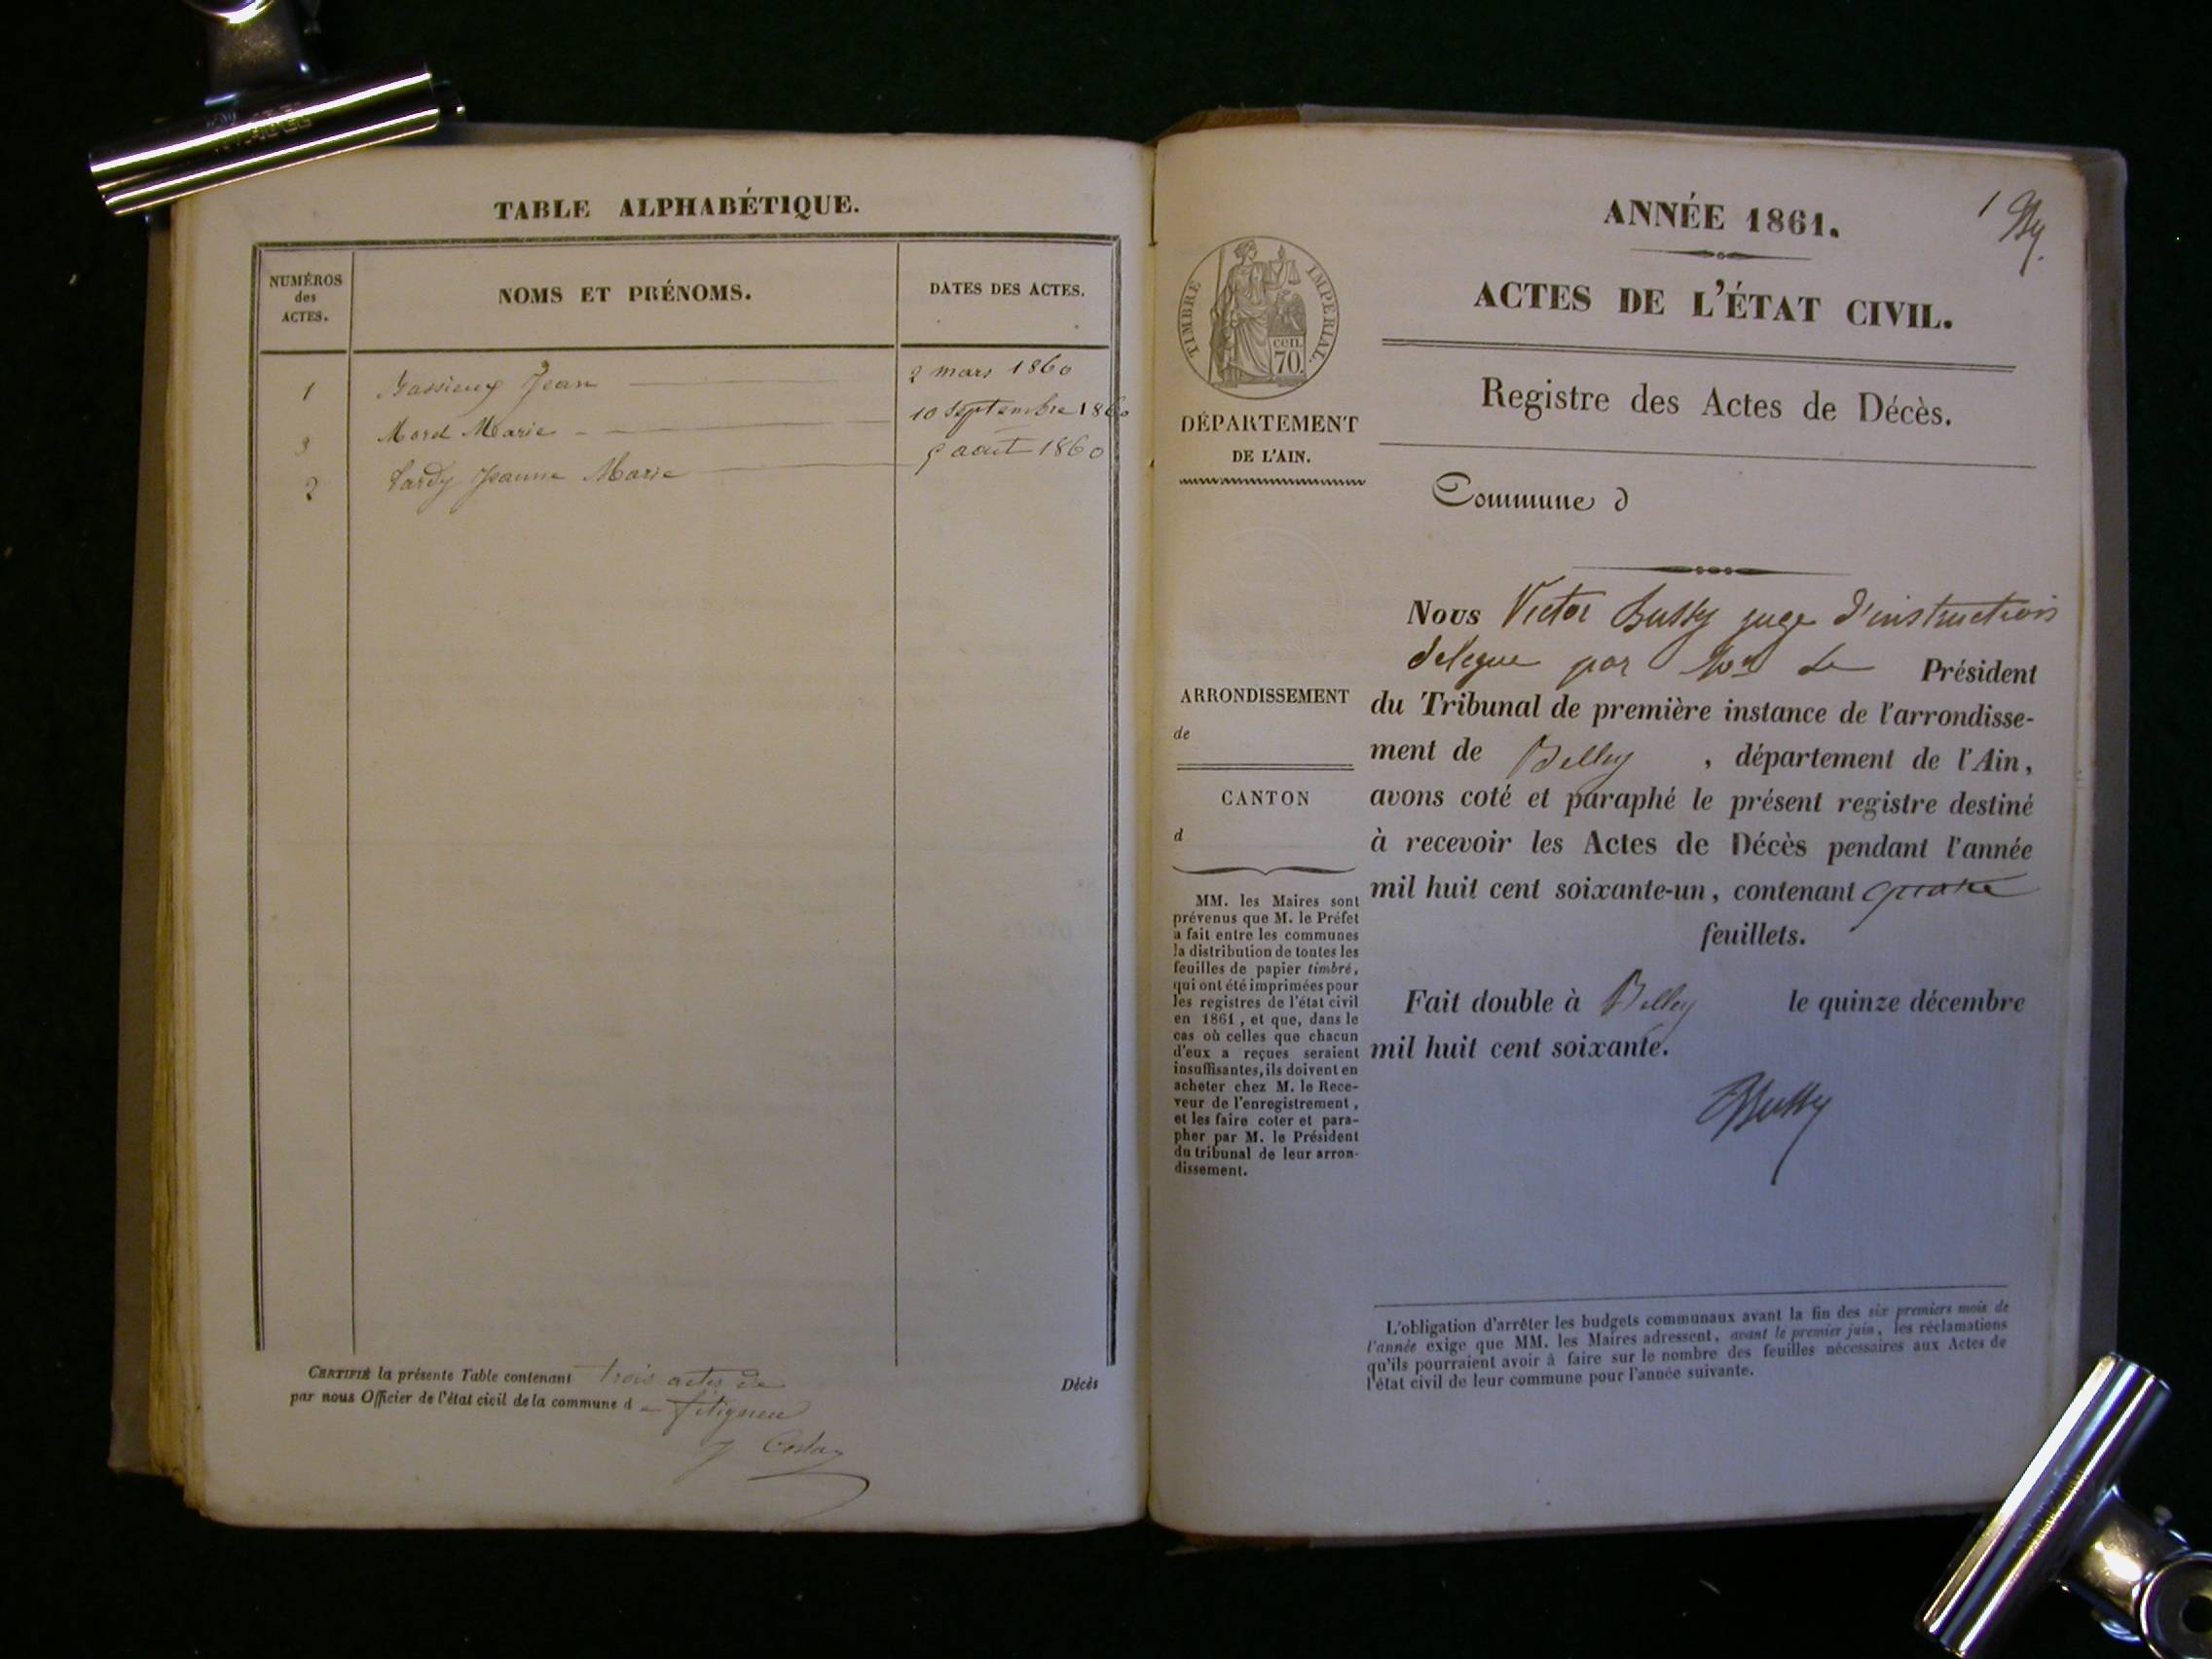 TABLE ALPHABÉTIQUE.
NUMÉROS
des
ACTES.
NOMS ET PRÉNOMS.
DATES DES ACTES.
1 Jean 2 mars 1860
3 Morel Marie 10 Septembre 1860
2 Tardy Jeanne Marie 9 aout 1860
CERTIFIÉ la présente Table contenant trois actes de Décès
par nous Officier de l'état civil de la commune d e fitignieu
J Costaz
1 By.
ANNÉE 1861.
ACTES DE L'ÉTAT CIVIL.
TIMBRE IMPÉRIAL.
cen.
70.
Registre des Actes de Décès.
DÉPARTEMENT
DE L'AIN.
Commune d
Nous Victor Butty juge d'instruction
délégué par Mr Le Président
du Tribunal de première instance de l'arrondisse-
ment de Belley , département de l'Ain,
avons coté et paraphé le présent registre destiné
à recevoir les Actes de Décès pendant l'année
mil huit cent soixante-un, contenant quatre
feuillets.
Fait double à Belley le quinze décembre
mil huit cent soixante.
Butty
ARRONDISSEMENT
de
CANTON
d
MM. les Maires sont
prévenus que M. le Préfet
a fait entre les communes
la distribution de toutes les
feuilles de papier timbré,
qui ont été imprimées pour
les registres de l'état civil
en 1861, et que, dans le
cas où celles que chacun
d'eux a reçues seraient
insuffisantes, ils doivent en
acheter chez M. le Rece-
veur de l'enregistrement,
et les faire coter et para-
pher par M. le Président
du tribunal de leur arron-
dissement.
L'obligation d'arrêter les budgets communaux avant la fin des six premiers mois de
l'année exige que MM. les Maires adressent, avant le premier juin, les réclamations
qu'ils pourraient avoir à faire sur le nombre des feuilles nécessaires aux Actes de
l'état civil de leur commune pour l'année suivante.